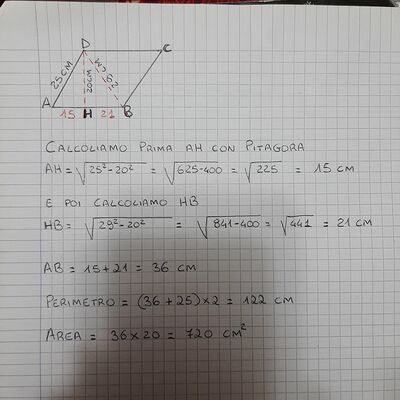 D C
25 CM 20CM 29 CM
A 15 H 21 B
CALCOLIAMO PRIMA AH CON PITAGORA
AH = √25²-20² = √625-400 = √225 = 15 CM
E POI CALCOLIAMO HB
HB = √29²-20² = √841-400 = √441 = 21 CM
AB = 15+21 = 36 CM
PERIMETRO = (36+25)×2 = 122 CM
AREA = 36×20 = 720 CM²